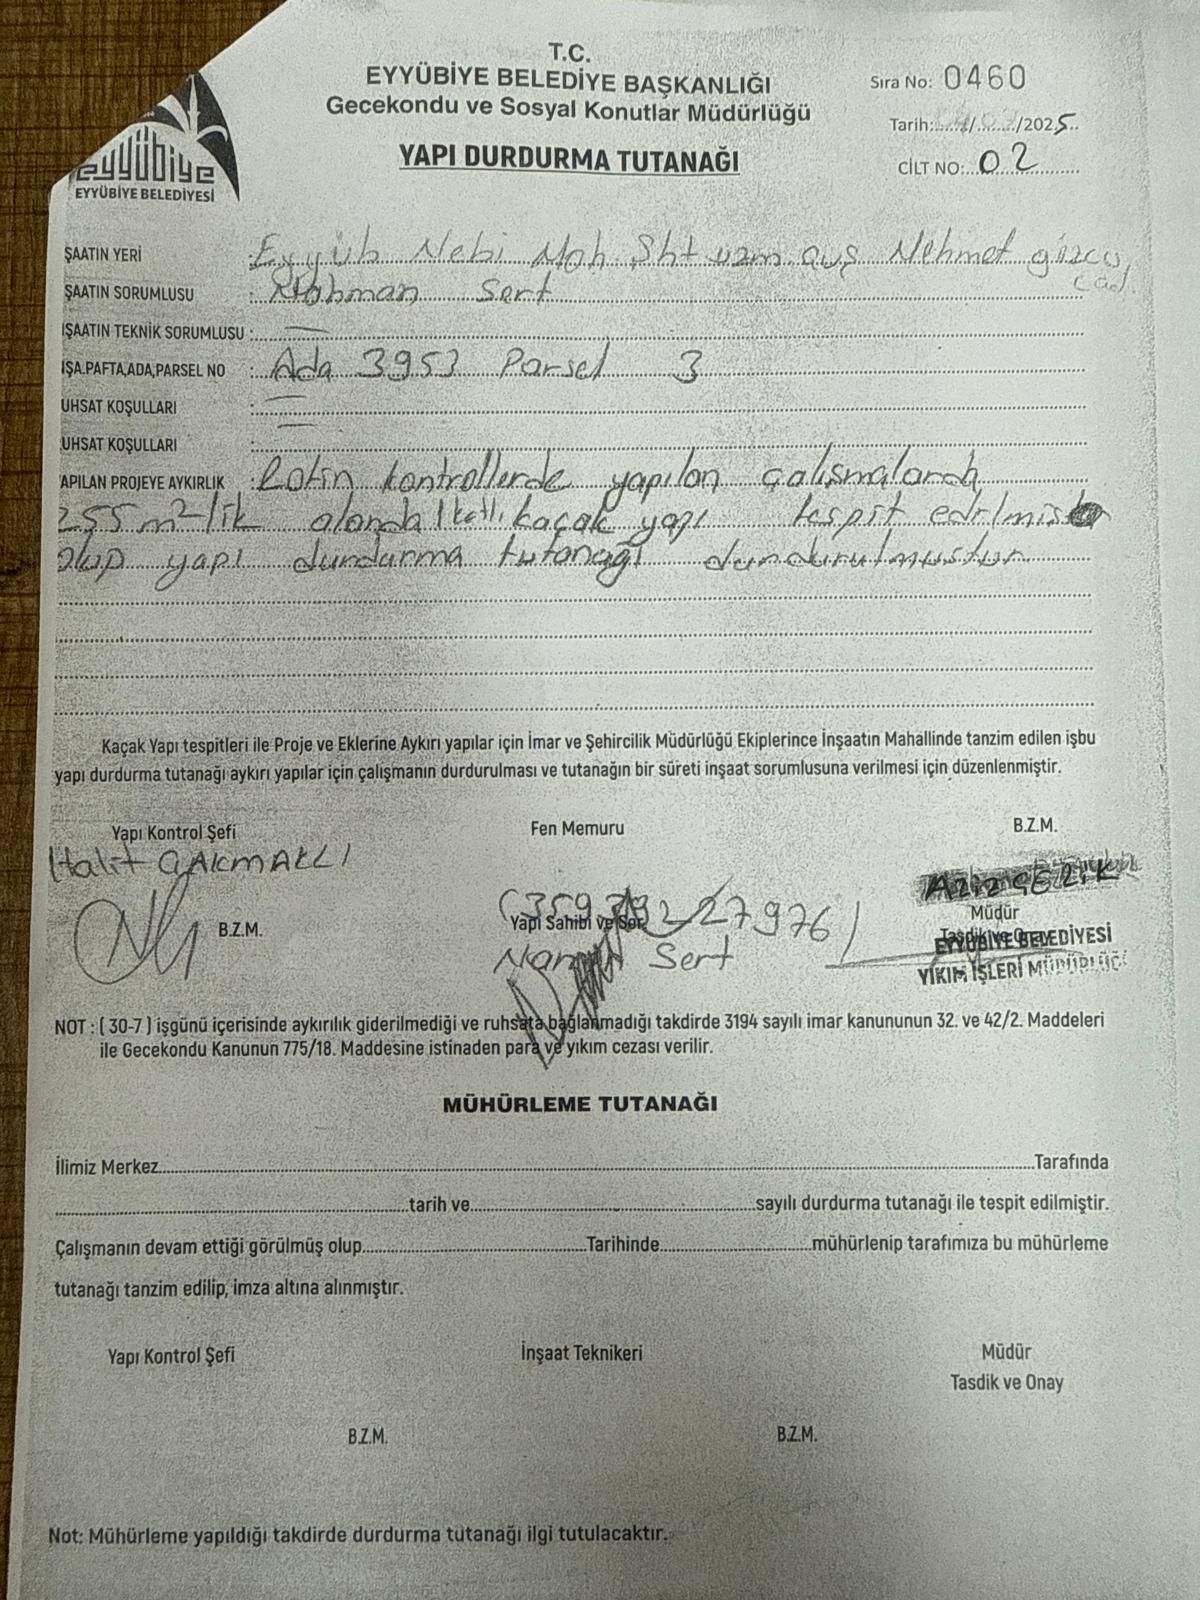 T.C.
EYYÜBİYE BELEDİYE BAŞKANLIĞI
Gecekondu ve Sosyal Konutlar Müdürlüğü
YAPI DURDURMA TUTANAĞI
Sıra No: 0460
Tarih:....../....../2025..
CİLT NO:...02
eyyübiye
EYYÜBİYE BELEDİYESİ
ŞAATIN YERİ : Eyyüb Nebi Mah. Şht uzm. çvş Mehmet gözcü Cad.
ŞAATIN SORUMLUSU : Sert
İŞAATIN TEKNİK SORUMLUSU : —
İŞA.PAFTA,ADA,PARSEL NO : Ada 3953 Parsel 3
UHSAT KOŞULLARI : —
UHSAT KOŞULLARI : —
APILAN PROJEYE AYKIRLIK : Rotin kontrollerde yapılan çalışmalarda
255 m²lik alanda 1 katlı kaçak yapı tespit edilmiş
olup yapı durdurma tutanağı
Kaçak Yapı tespitleri ile Proje ve Eklerine Aykırı yapılar için İmar ve Şehircilik Müdürlüğü Ekiplerince İnşaatın Mahallinde tanzim edilen işbu
yapı durdurma tutanağı aykırı yapılar için çalışmanın durdurulması ve tutanağın bir süreti inşaat sorumlusuna verilmesi için düzenlenmiştir.
Yapı Kontrol Şefi
Fen Memuru
B.Z.M.
Halit ÇAKMAKLI
Aziz ÇELİK
B.Z.M.
Yapı Sahibi ve Sor
Sert
Müdür
Tasdik ve Onay
EYYÜBİYE BELEDİYESİ
YIKIM İŞLERİ MÜDÜRLÜĞÜ
NOT : ( 30-7 ) işgünü içerisinde aykırılık giderilmediği ve ruhsata bağlanmadığı takdirde 3194 sayılı imar kanununun 32. ve 42/2. Maddeleri
ile Gecekondu Kanunun 775/18. Maddesine istinaden para ve yıkım cezası verilir.
MÜHÜRLEME TUTANAĞI
İlimiz Merkez..........Tarafında
..........tarih ve..........sayılı durdurma tutanağı ile tespit edilmiştir.
Çalışmanın devam ettiği görülmüş olup..........Tarihinde..........mühürlenip tarafımıza bu mühürleme
tutanağı tanzim edilip, imza altına alınmıştır.
Yapı Kontrol Şefi
İnşaat Teknikeri
Müdür
Tasdik ve Onay
B.Z.M.
B.Z.M.
Not: Mühürleme yapıldığı takdirde durdurma tutanağı ilgi tutulacaktır.